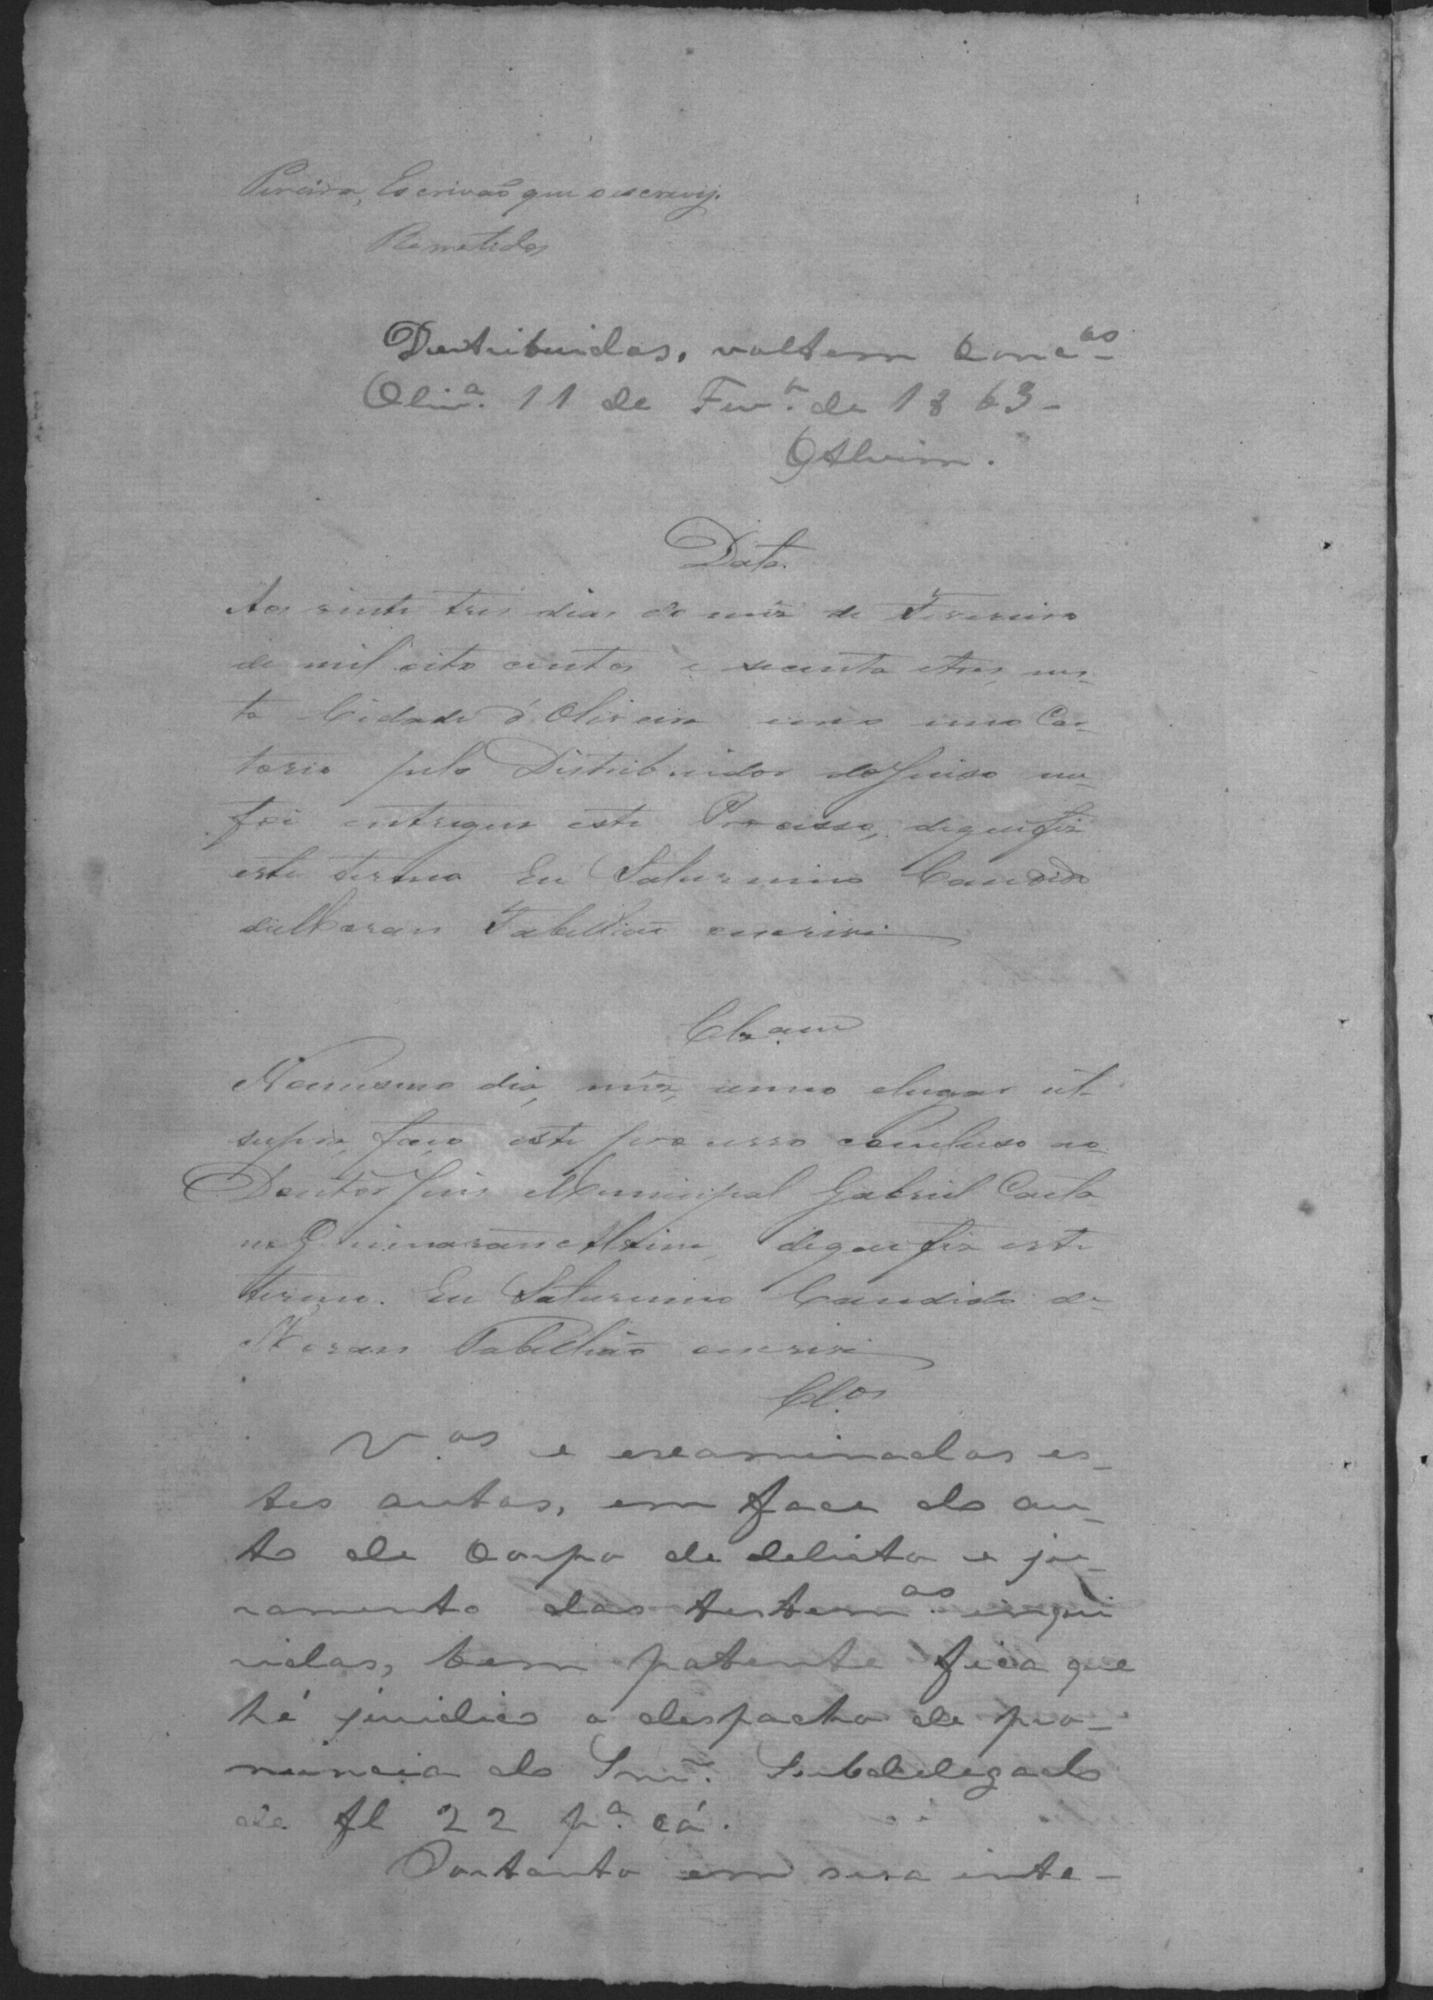 Pereira, Escrivaõ que o escrevy.
Remetidos
Destribuidos, voltem Conc.os
Oliv.a 11 de Fev.o de 1863 -
GAlvim.
Data
Aos vinte tres dias do mêz de Fevereiro
de mil oito centos e secenta etres, nes-
ta Cidade d'Oliveira em meo Car-
torio pelo Distribuidor do Juiso me
foi entregue este Processo, deque fiz
este termo Eu Saturnino Candido
de Moraes Tabelliaõ escrivi
Clzam
No mesmo dia, mêz, anno elugar ut
supra, faço este processo concluso ao
Doutor Juis Municipal Gabriel Caeta
no Guimarães Alvim, deque fiz este
termo. Eu Saturnino Candido de
Moraes Tabelliaõ escrivi
Cl.os
V.os e examinados es-
tes autos, em face do au-
to de Corpo de delicto e ju-
ramento das testem.as inqui
ridas, bem patente fica que
hé juridico o despacho de pro-
nuncia do Snr. Subdelegado
de fl 22 p.a cá.
Portanto em sua inte-